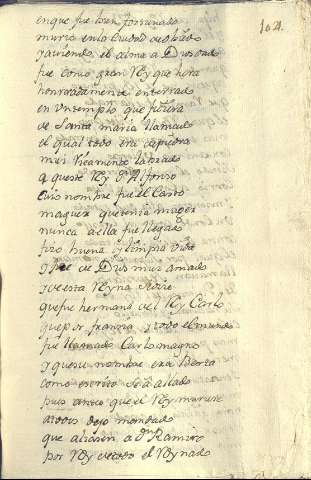 102.
enque fue bien fortunado
murio enla ciudad de obiedo
y auiendo el alma a Dios dado
fue como gran Rey que hera
honrradamente enterrado
en Un templo que fiçiera
de Santa maria llamado
el qual todo era de piedra
mui Ricamente labrado
a queste Rey Dn Alfonso
Cuio nombre fue el Casto
maguer que tenia muger
nunca a ella fue llegado
fizo buena y limpia vida
y fue de Dios mui amado
y de esta Reyna
que fue hermana del Rey Carlo
que por francia y todo el mundo
fue llamado Carlo magno
y que su nombre era Berta
como escrito se a allado
pues antes que el Rey muriese
dejo mandado
que alçasen a Dn Ramiro
por Rey de todo el Reynado